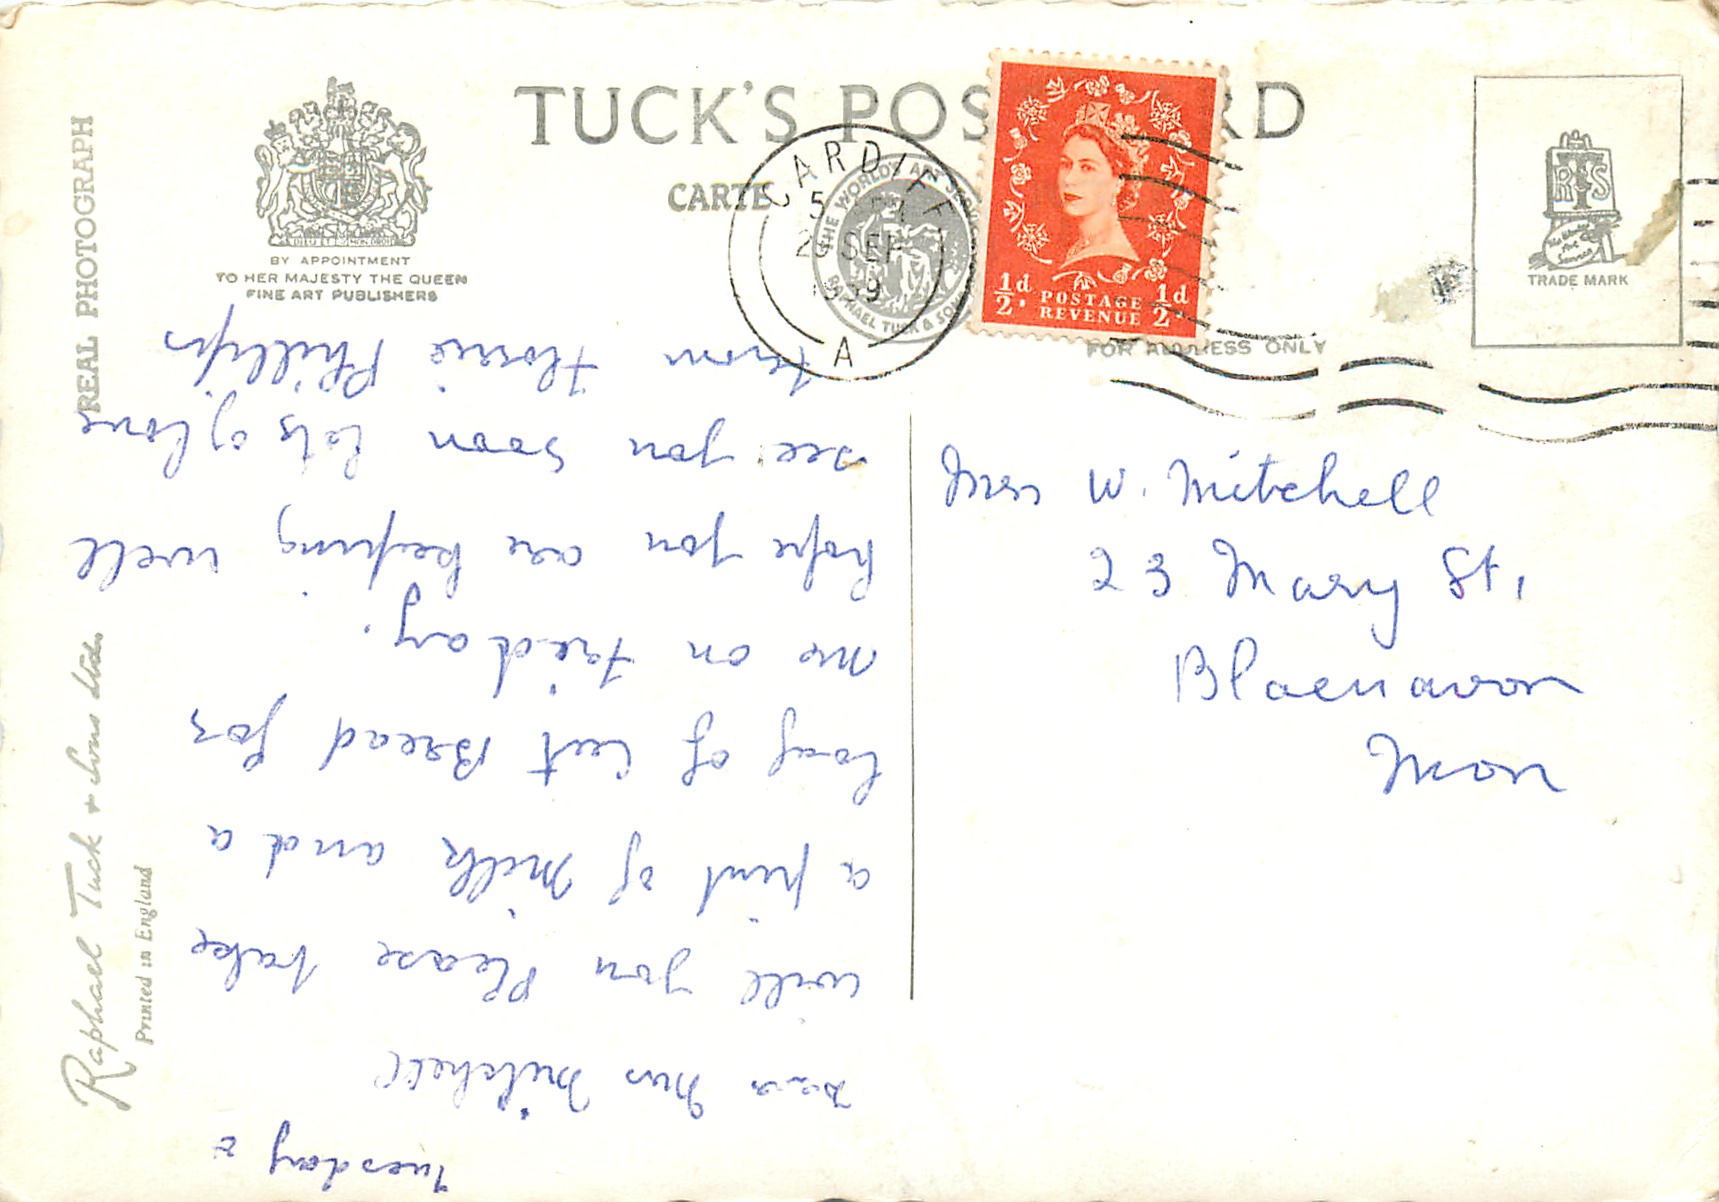 TUCK'S POS RD
CARTE
REAL PHOTOGRAPH
DIEU ET MON DROIT
BY APPOINTMENT
TO HER MAJESTY THE QUEEN
FINE ART PUBLISHERS
CARDIFF
5
SEP
1959
A
THE WORLD'S ART SERVICE
RAPHAEL TUCK & SONS
½d. POSTAGE ½d
REVENUE
RTS
TRADE MARK
FOR ADDRESS ONLY
Raphael Tuck & Sons Ltd.
Printed in England
Tuesday
Dear Mrs Mitchell
will you Please take
a pint of Milk and a
loaf of Cut Bread for
me on friday.
hope you are keeping well
see you soon lots of love
from Florrie Phillips
Mrs W. Mitchell
23 Mary St,
Blaenavon
Mon